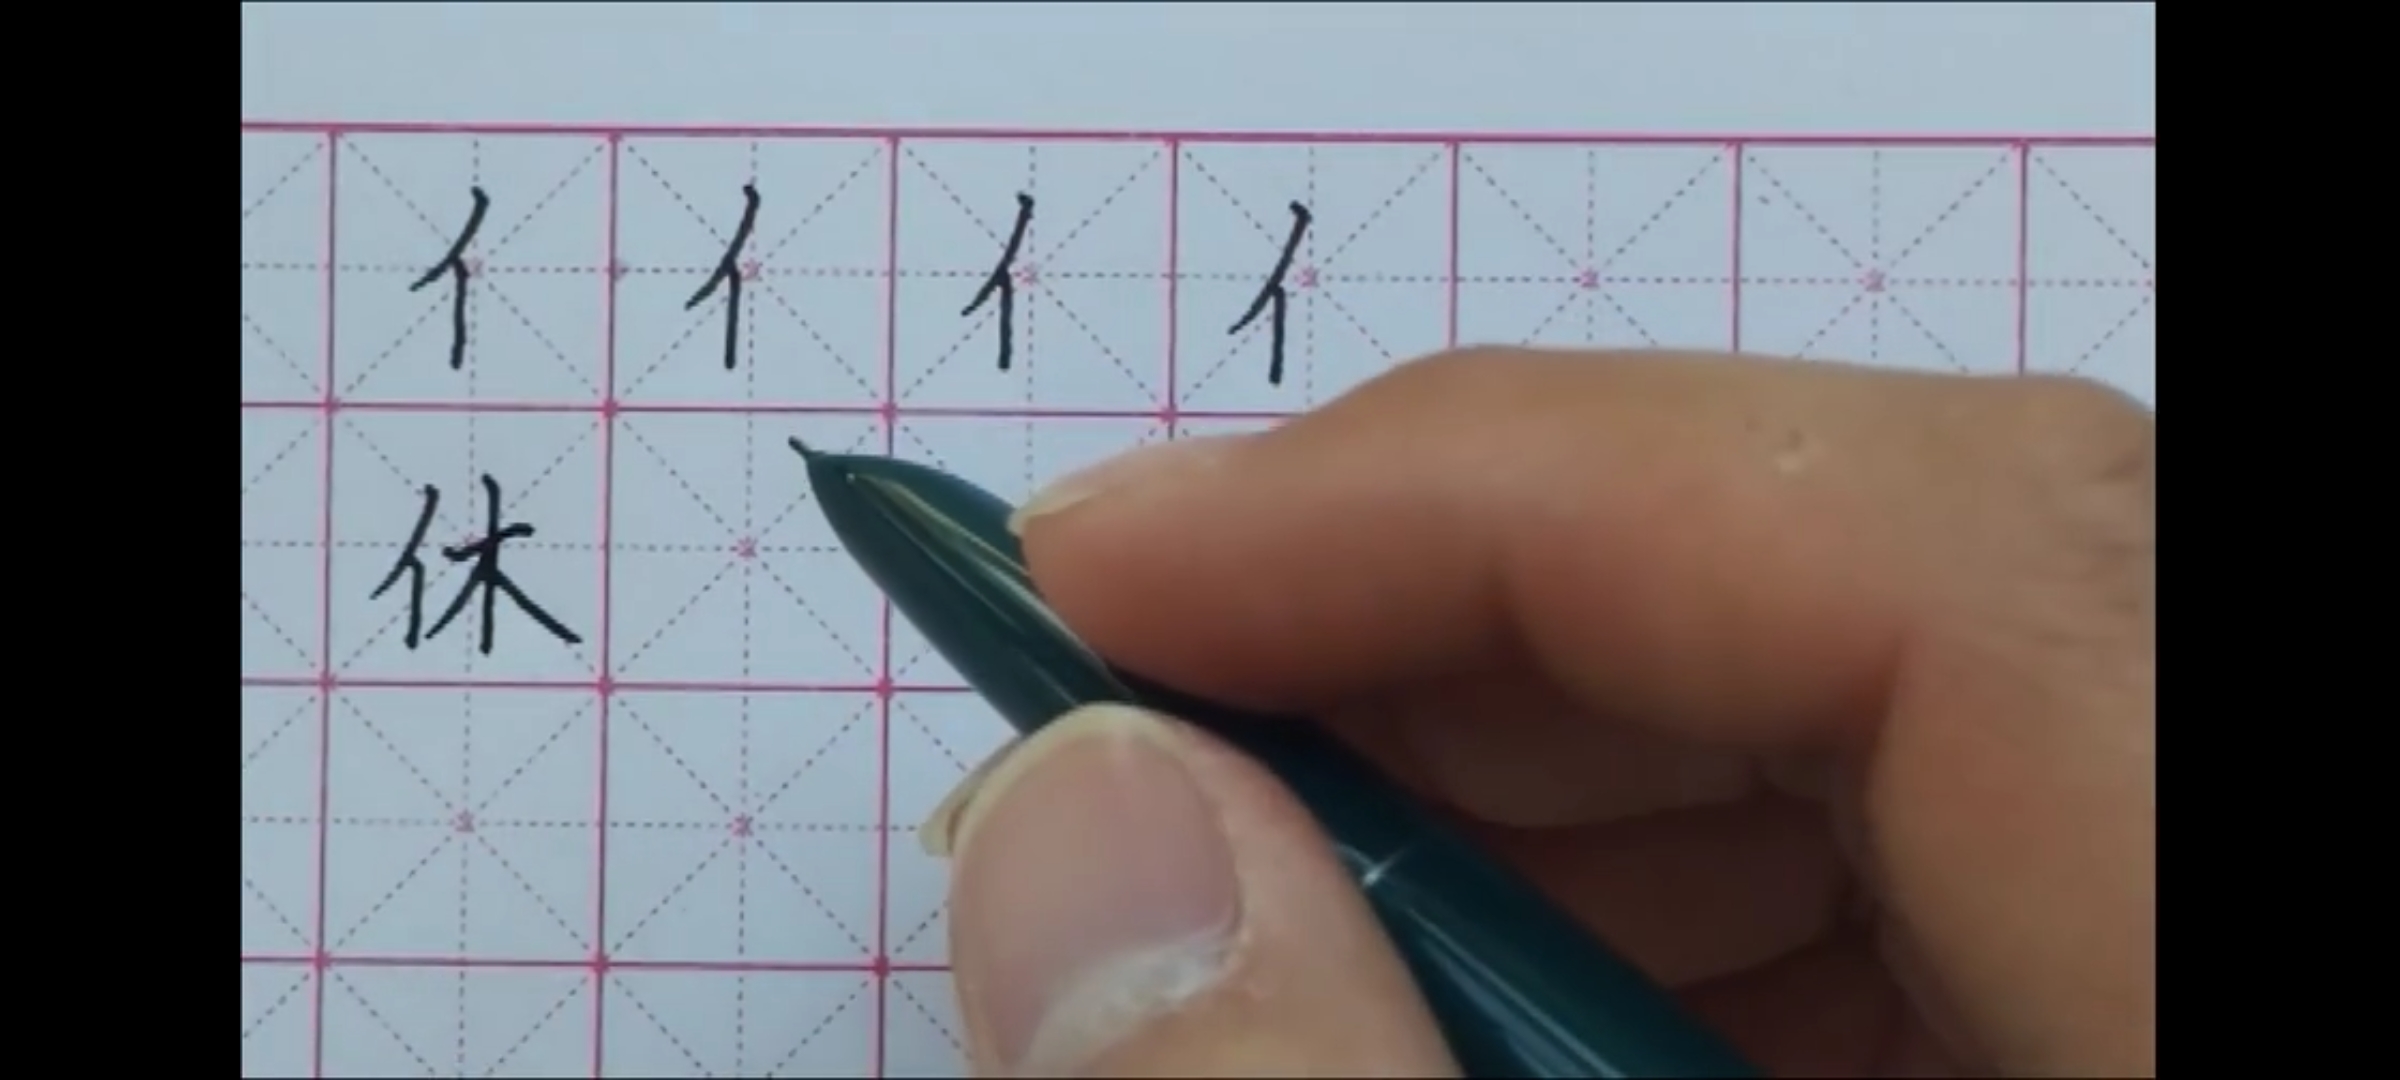 亻亻亻亻
休